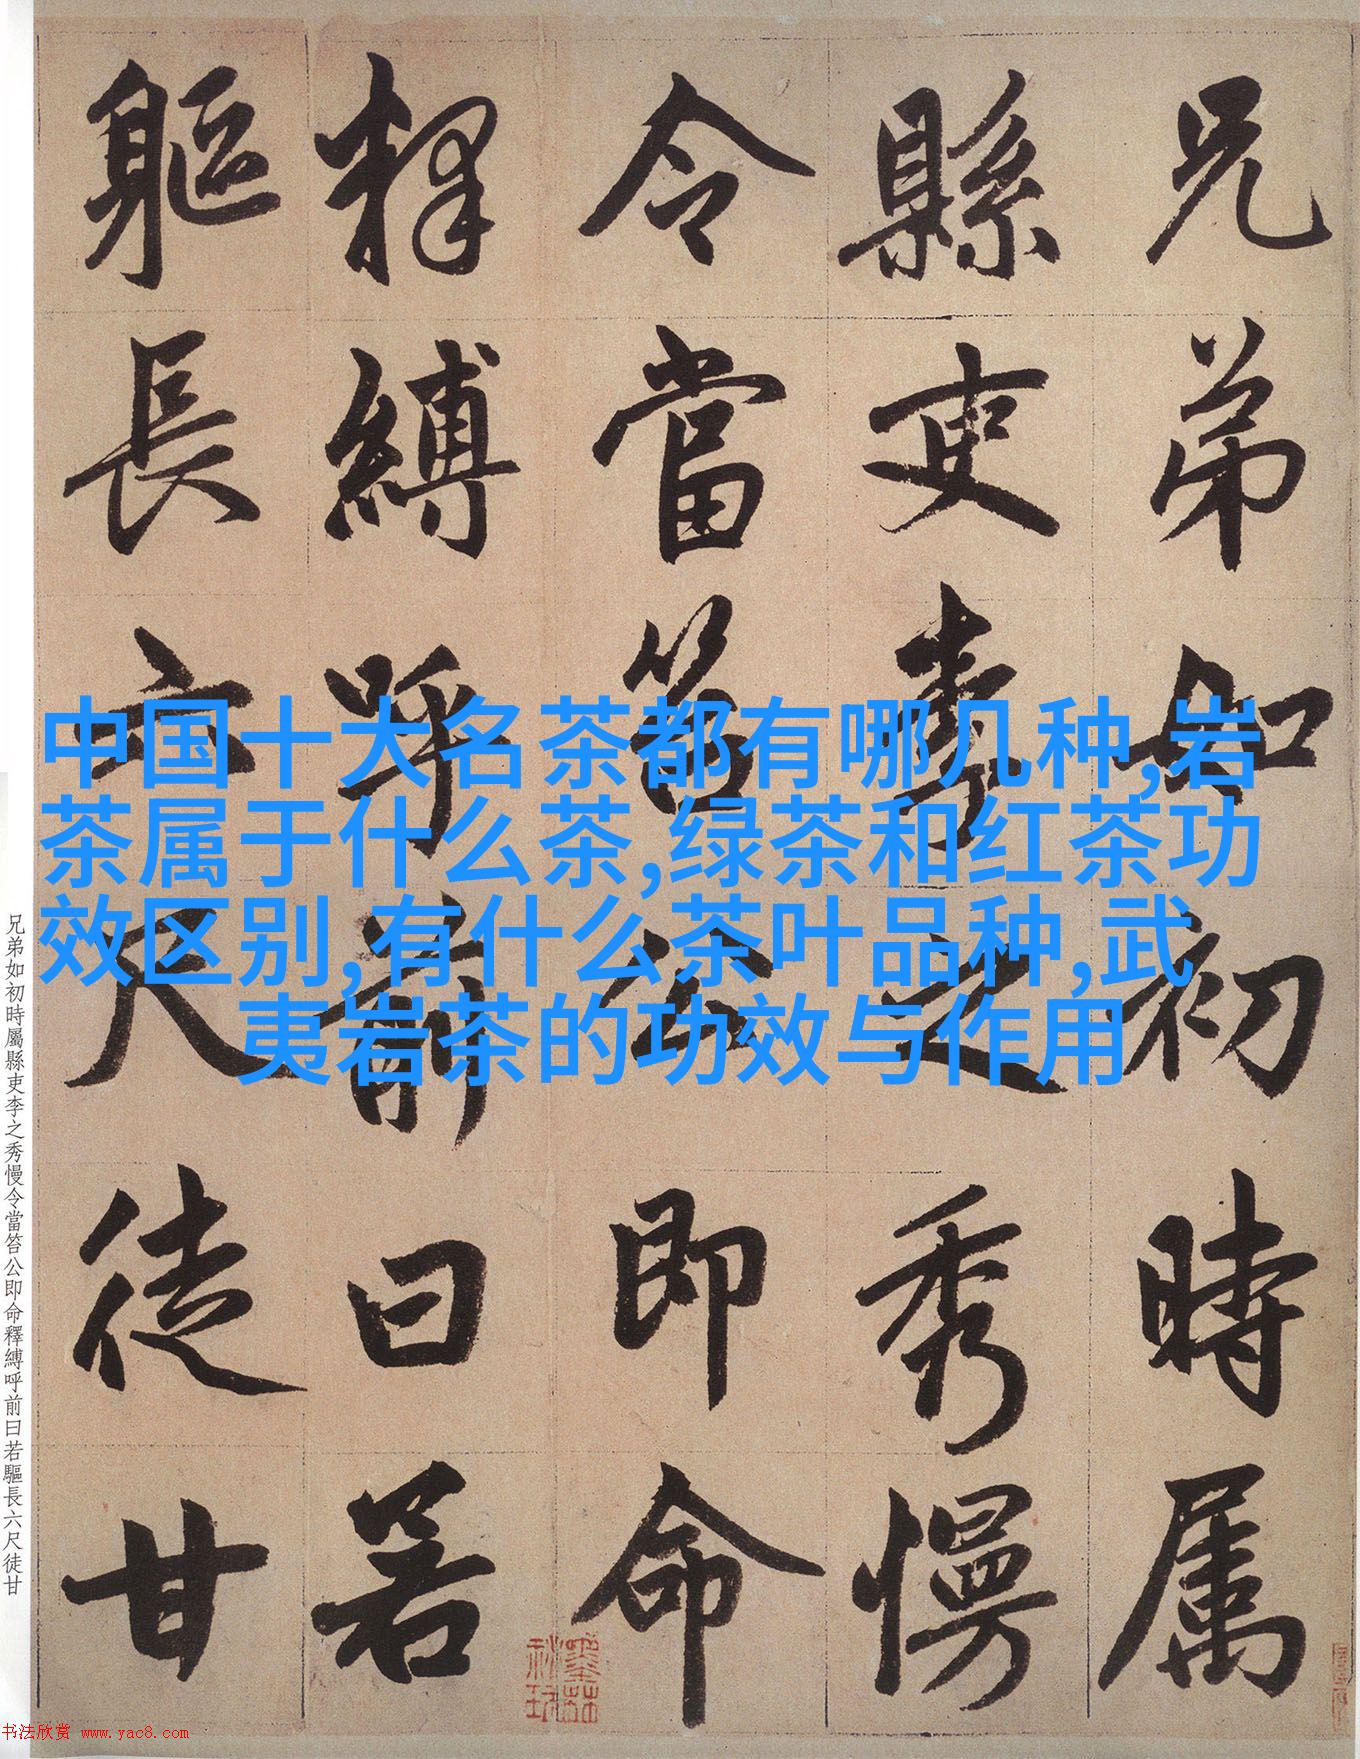 兄弟如初時属
縣吏李之秀慢
令當笞公即命
釋縛呼前曰若
軀長六尺徒甘
中国十大名茶都有哪几种,岩
茶属于什么茶,绿茶和红茶功
效区别,有什么茶叶品种,武
夷岩茶的功效与作用
兄弟如初時屬縣吏李之秀慢令當笞公即命釋縛呼前曰若驅長六尺徒甘
书法欣赏 www.yac8.com